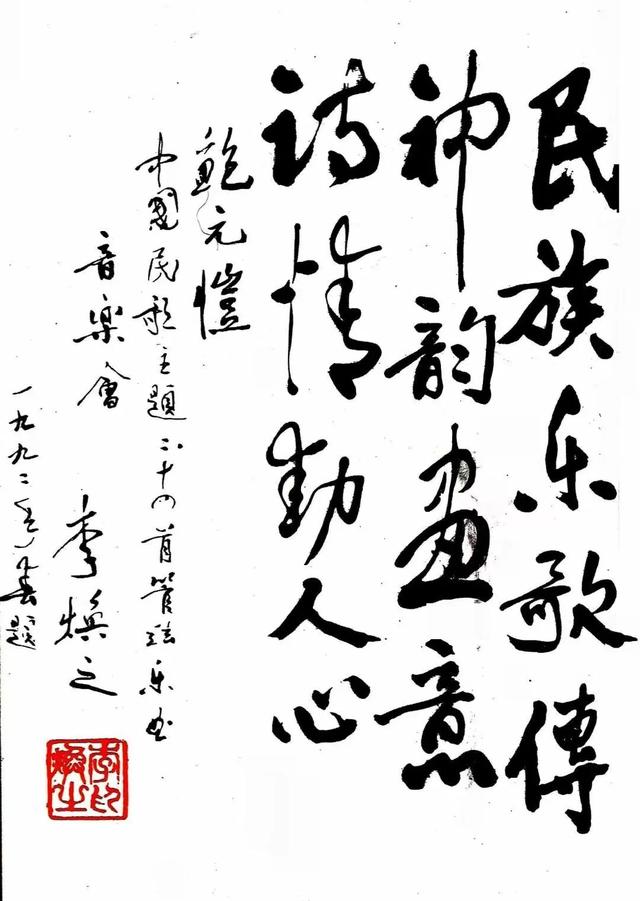 民族乐歌傳
神韵画意
诗情動人心
鲍元愷
中國民歌主題二十四首管弦乐曲
音樂會
李焕之
一九九二年春题
李焕之印